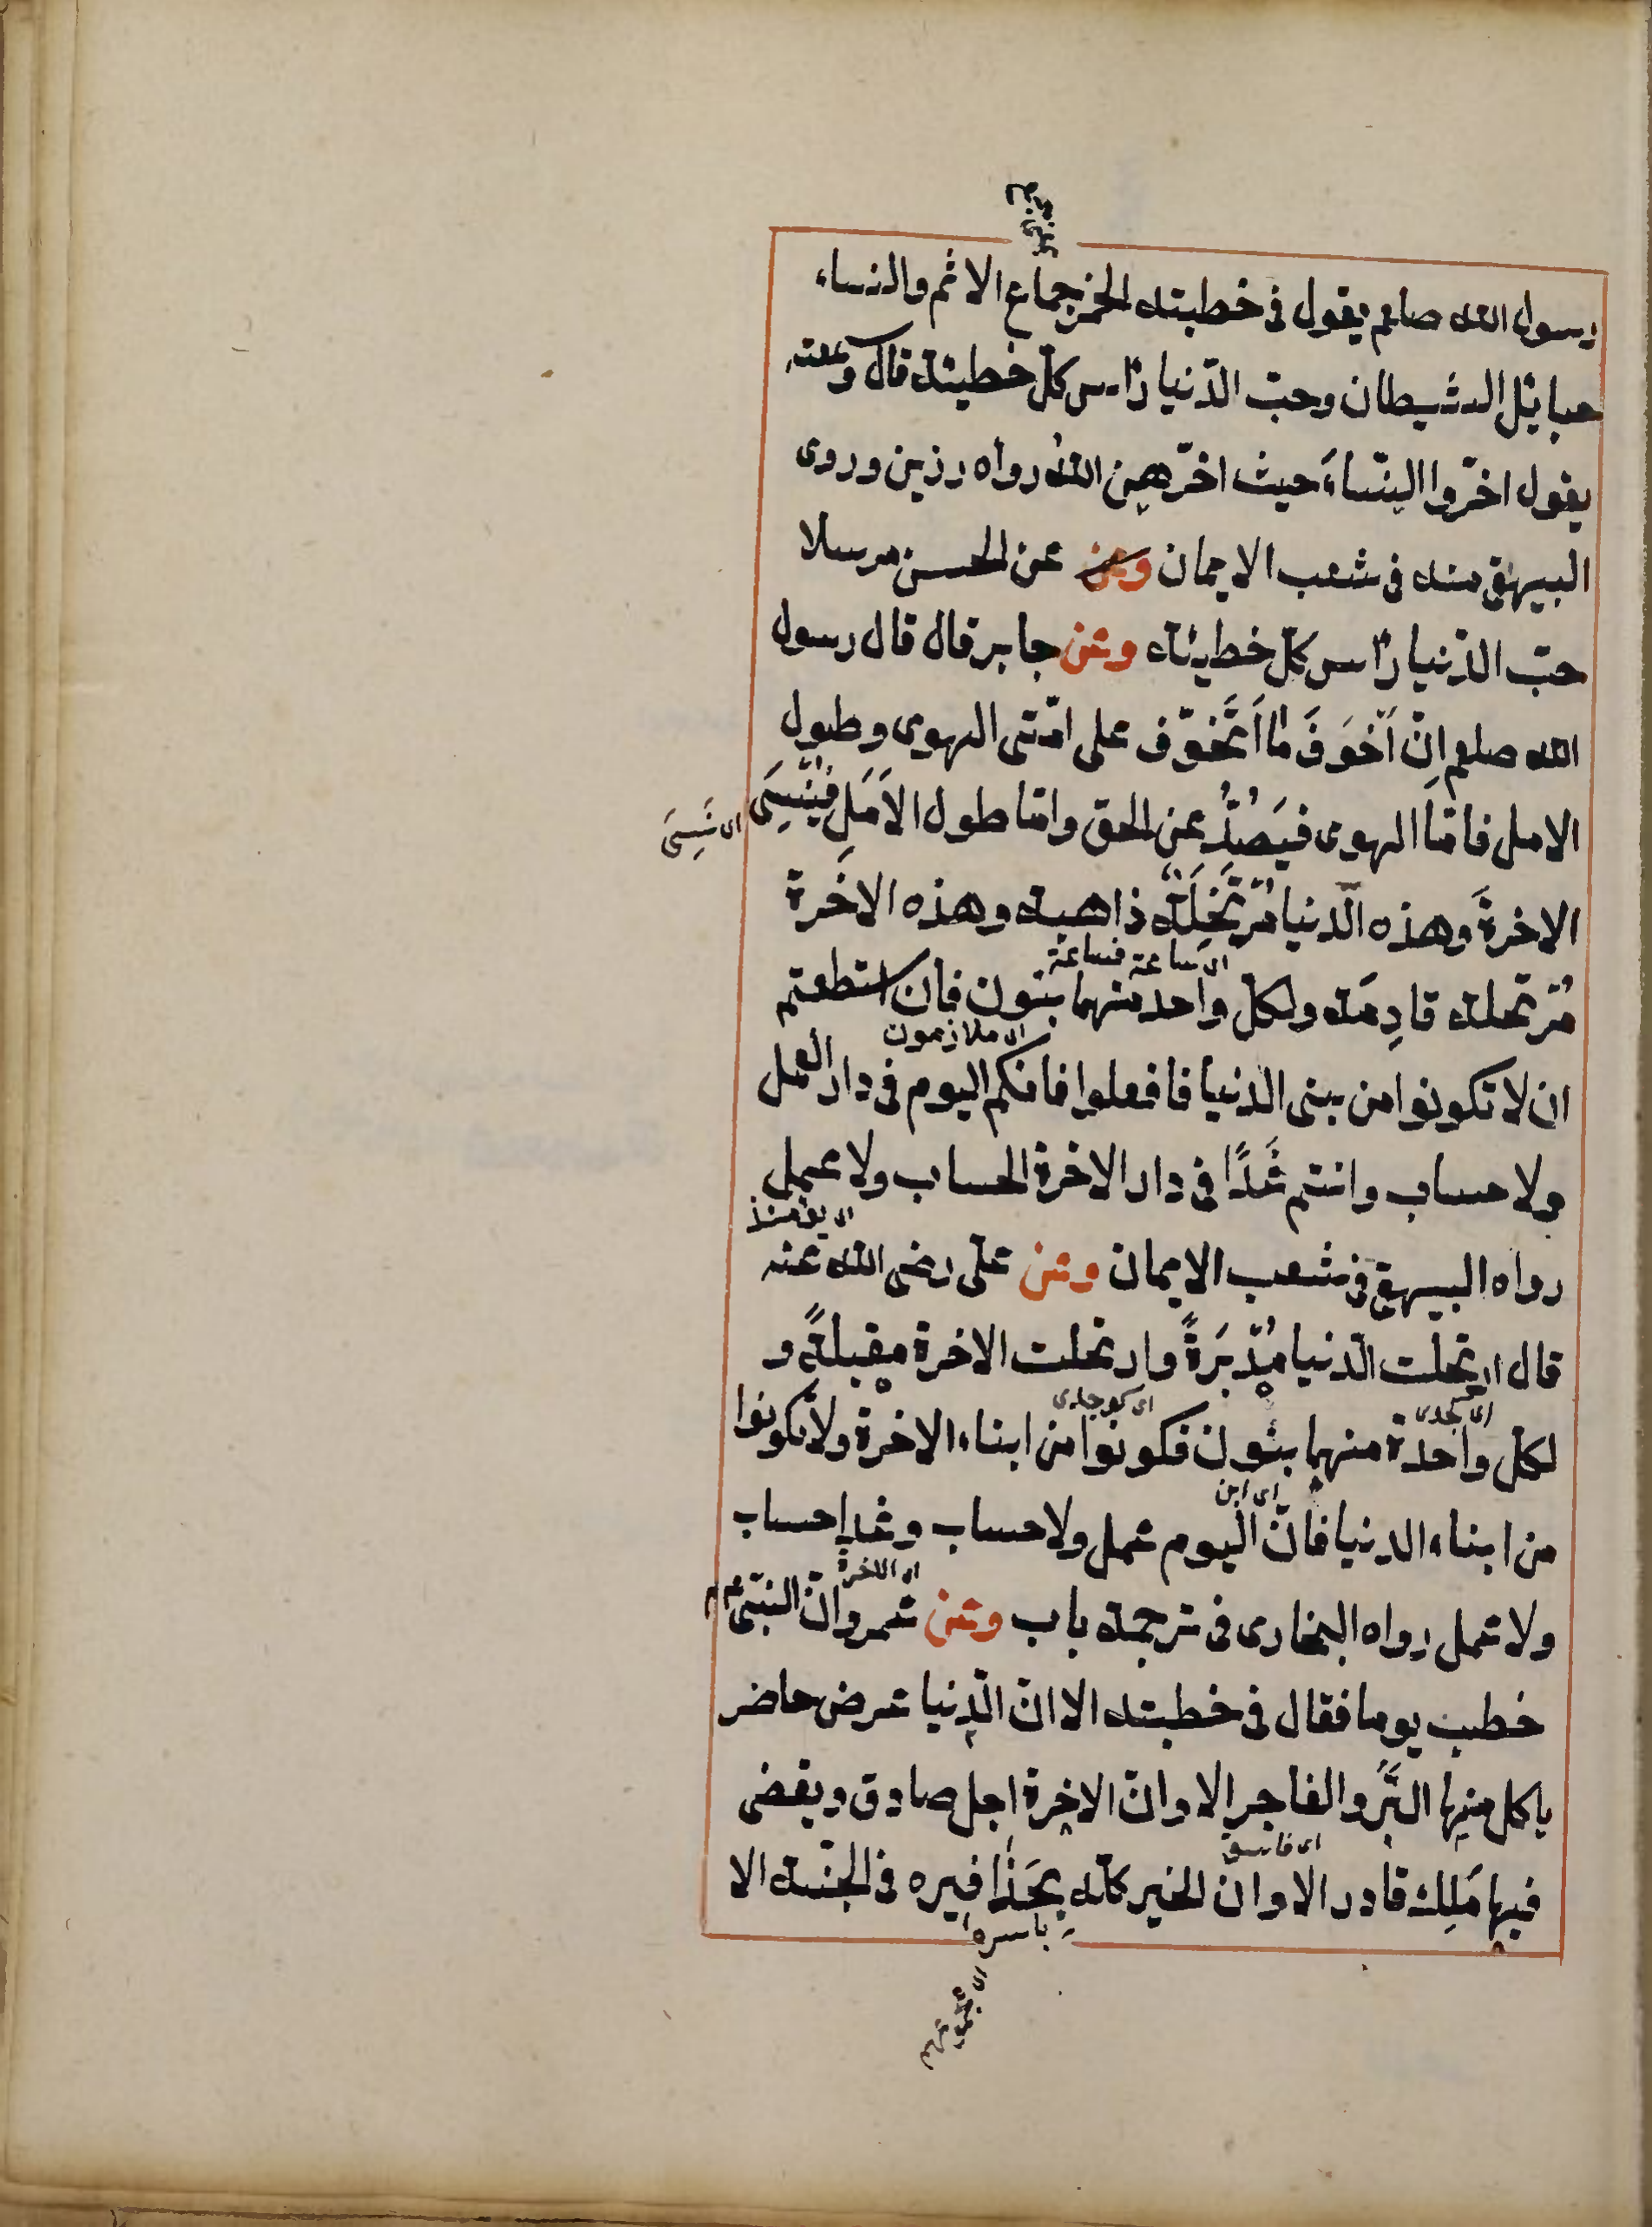 رسول الله صلعم يقول فى خطبته الخمر جماع الاثم والنساء
حبائل الشيطان وحبّ الدّنيا رأس كلّ خطيئة قال وسمعته
يقول اخّروا النّساءَ حيث اخّرهن اللهُ رواه رزين وروى
البيهقى منه فى شعب الايمان وعن عن الحسن مرسلا
حبّ الدّنيا رأس كلّ خطيئة وعن جابر قال قال رسول
الله صلعم اِنّ اَخْوَفَ ما اَتَخَوّف على امّتى الهوى وطول
الامل فامّا الهوى فيَصُدُّ عن الحق وامّا طول الاَمَلِ فيُنْسِى
اى نَسِىَ
الاخرةَ وهذه الدّنيا مُرْتَحِلَةٌ ذاهبة وهذه الاخرة
اى ساعة فساعة
مُرْتحلة قادِمَة ولكلّ واحد منهما بنون فان استطعتم
اى ملازمون
ان لا تكونوا من بنى الدنيا فافعلوا فانكم اليوم فى دار العمل
ولا حساب وانتم غَدًا فى دار الاخرة الحساب ولا عمل
اى يومئذ
رواه البيهقى فى شعب الايمان وعن علىّ رضى الله عنه
قال ارتحلت الدّنيا مُدْبَرَةً وارتحلت الاخرة مقبلةً و
لكلّ واحدة منهما بنون فكونوا من ابناء الاخرة ولا تكونوا
من ابناء الدنيا فانّ اليوم عمل ولا حساب وغدا حساب
اى الاخرة
ولا عمل رواه البخارى فى ترجمة باب وعن عمرو انّ النبىّ عم
خطب يوما فقال فى خطبته الا انّ الدّنيا عرض حاضر
يأكل منها البَرُّ والفاجر الا وانّ الاخرة اجل صادق ويقضى
اى فاسق
فيها مَلِك قادر الا وانّ الخير كلّه بحَذافيره فى الجنّة الا
باسره